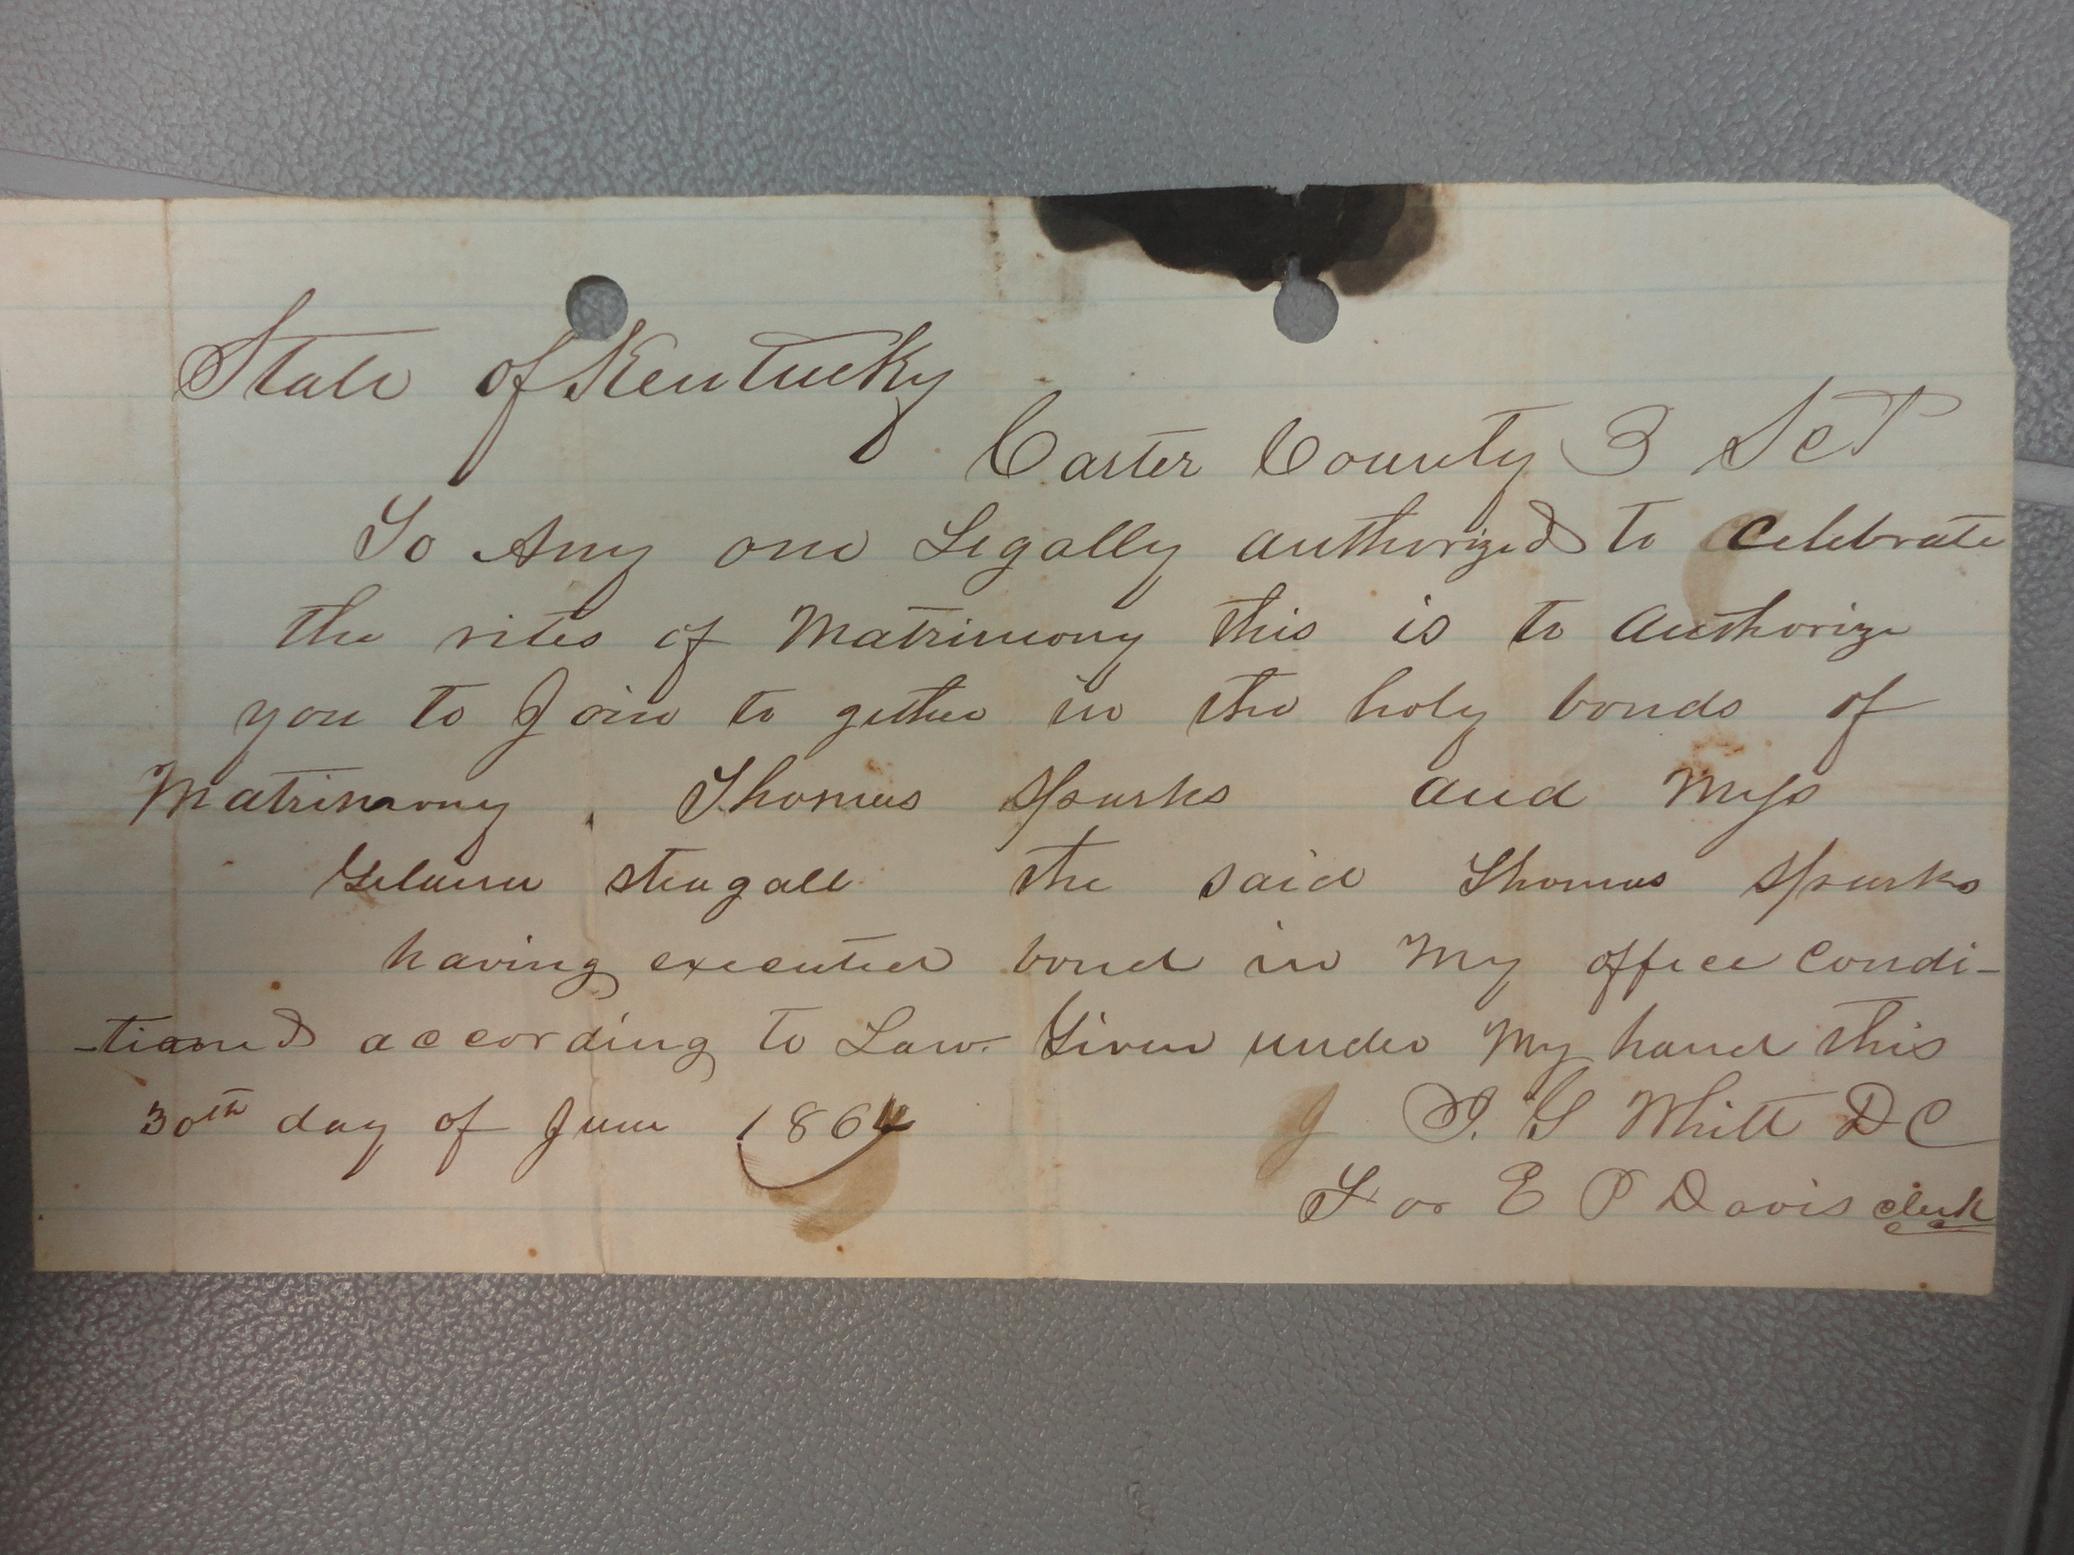 State of Kentucky
Carter County } Sct
To Any one Legally authorized to Celebrate
the rites of Matrimony this is to Authorize
you to Join to gether in the holy bonds of
Matrimony. Thomas Sparks and Miss
steagall the said Thomas Sparks
having executed bond in My office Condi-
-tioned according to Law. Given under My hand this
30th day of June 1864 G Whitt DC
For E P Davis clerk